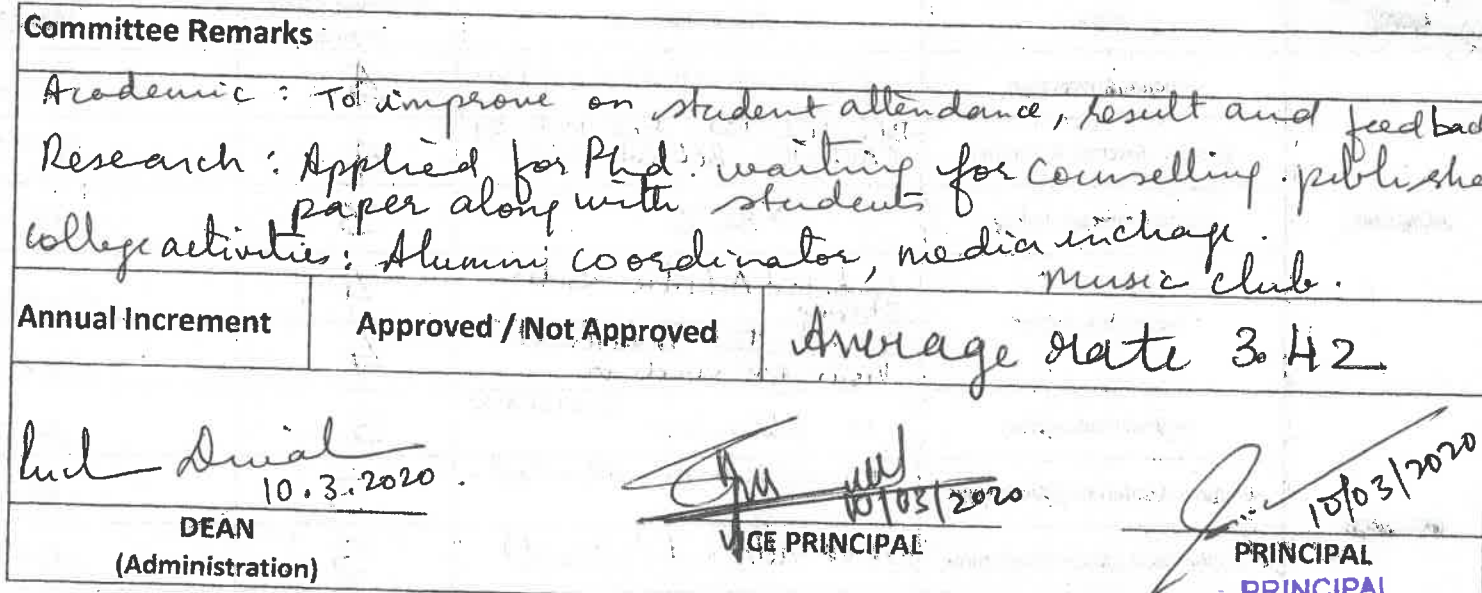 Committee Remarks
Academic : To improve on student attendance, result and feedbac
Research : Applied for Phd. waiting for counselling. publishe
paper along with students
college activities : Alumni coordinator, media incharge.
music club.
Annual Increment Approved / Not Approved Average rate 3.42
10.3.2020.
10/03/2020
10/03/2020
DEAN VICE PRINCIPAL PRINCIPAL
(Administration) PRINCIPAL